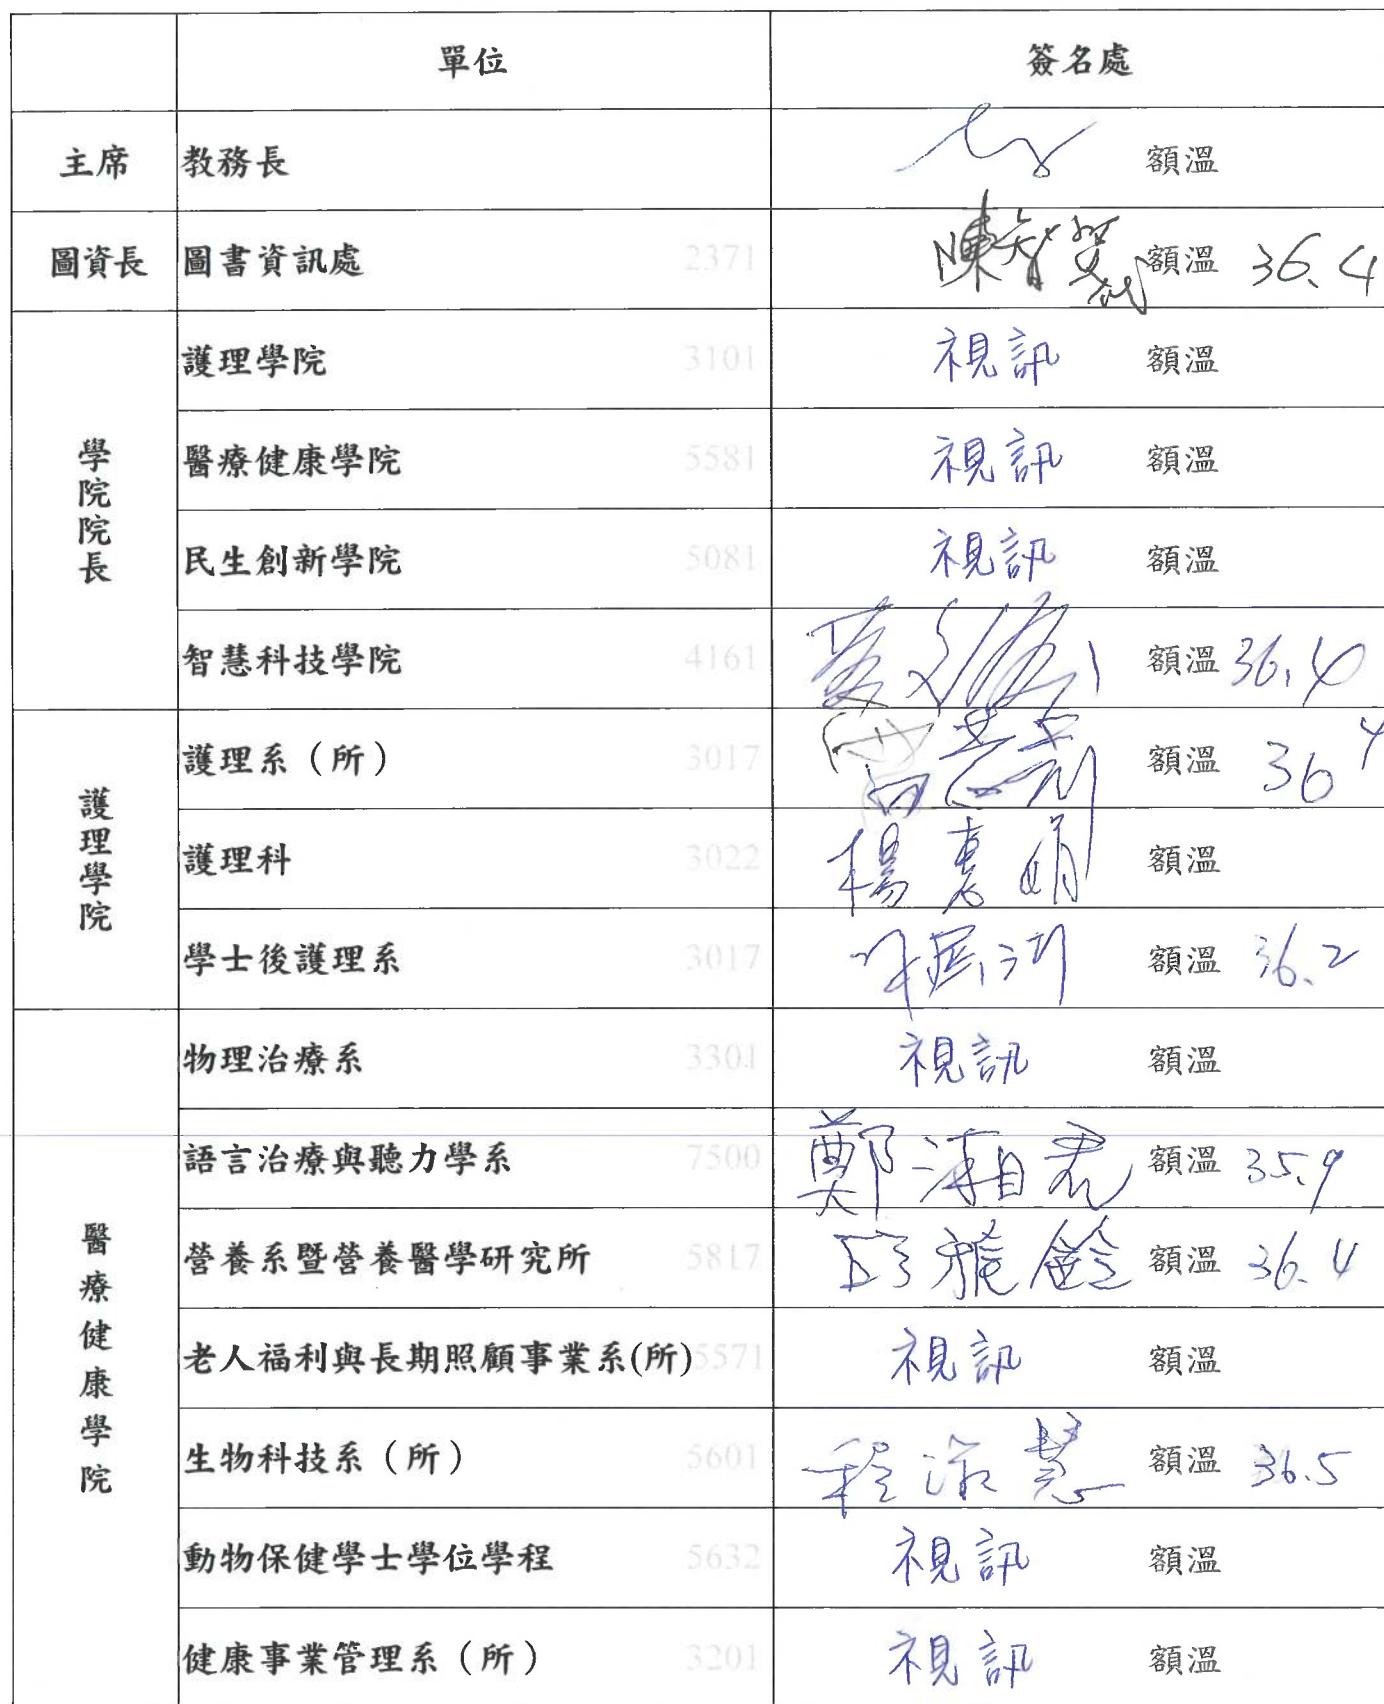 單位 簽名處
主席 教務長 額溫
圖資長 圖書資訊處 2371 陳智 額溫 36.4
學院院長
護理學院 3101 視訊 額溫
醫療健康學院 5581 視訊 額溫
民生創新學院 5081 視訊 額溫
智慧科技學院 4161 額溫 36.4
護理學院
護理系（所） 3017 額溫 36 4
護理科 3022 楊惠娟 額溫
學士後護理系 3017 額溫 36.2
醫療健康學院
物理治療系 3301 視訊 額溫
語言治療與聽力學系 7500 鄭湘君 額溫 35.9
營養系暨營養醫學研究所 5817 雅 額溫 36.4
老人福利與長期照顧事業系(所) 5571 視訊 額溫
生物科技系（所） 5601 程淑慧 額溫 36.5
動物保健學士學位學程 5632 視訊 額溫
健康事業管理系（所） 3201 視訊 額溫